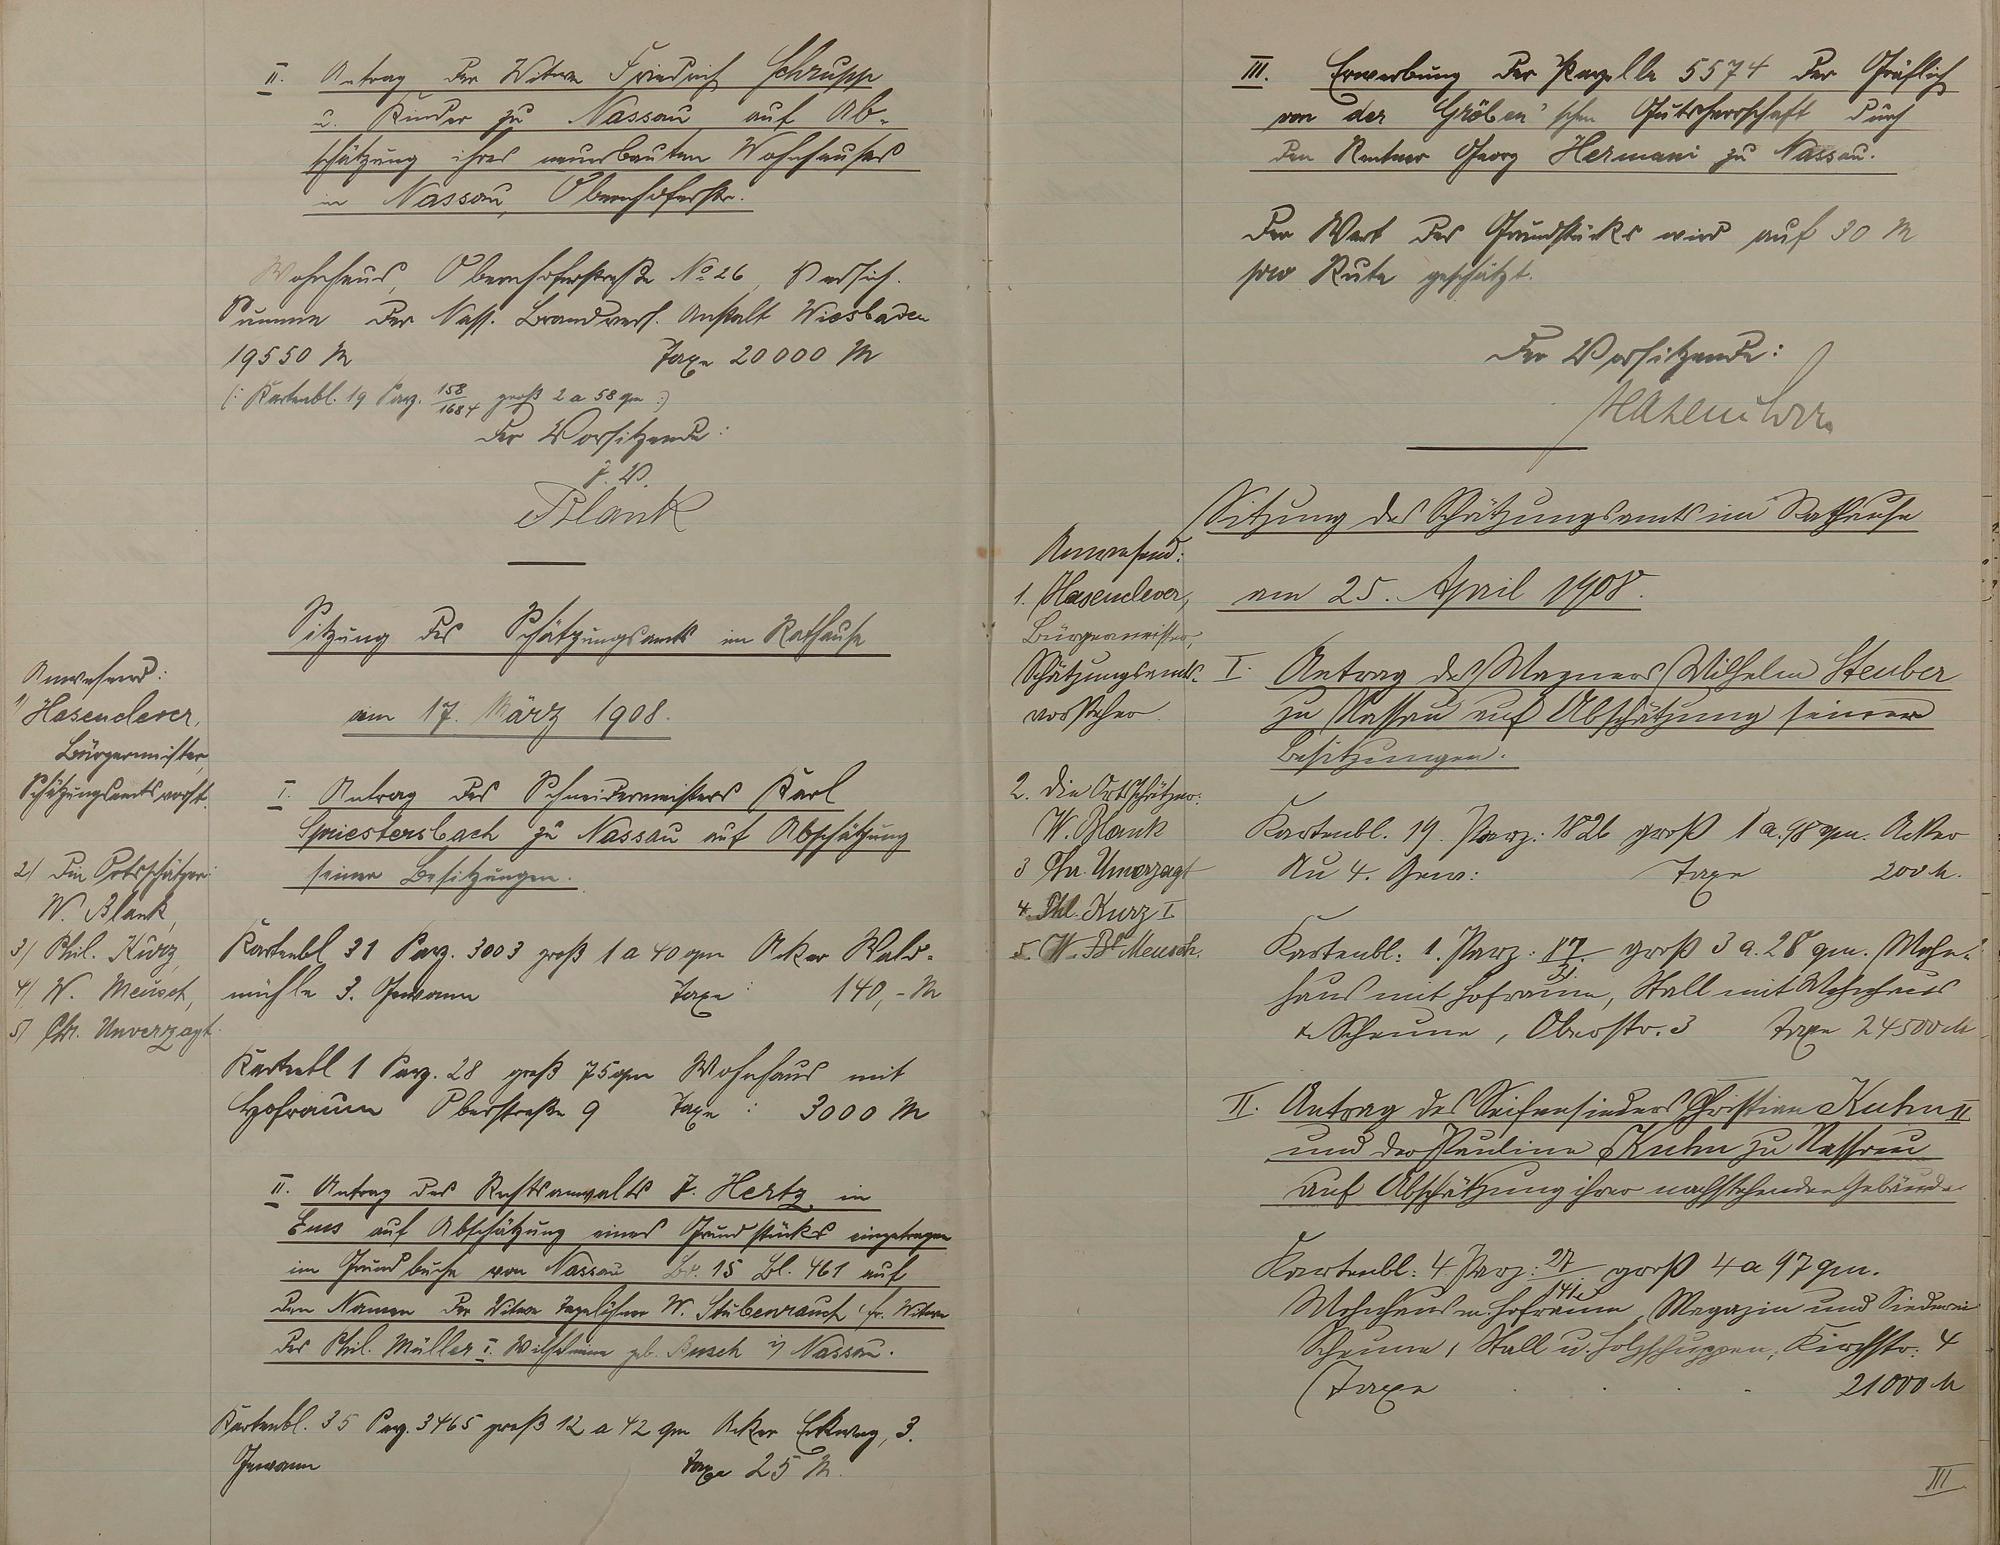 II. Antrag der Witwe Friedrich Schrupp
u. Kinder zu Nassau auf Ab-
schätzung ihres neuerbauten Wohnhauses
in Nassau, Obernhoferstr.
Wohnhaus, Obernhoferstraße No 26, Versich.
Summe der Nass. Brandvers. Anstalt Wiesbaden
19550 M Taxe 20000 M
(: Kartenbl. 19 Parz. 158/1684 groß 2 a 58 qm :)
Der Vorsitzende:
J. V.
Blank
Sitzung des Schätzungsamts im Rathause
am 17. März 1908.
Anwesend:
1) Hasenclever,
Bürgermeister,
Schätzungsamtsvorst.
2) Die Ortsschätzer:
W. Blank,
3) Phil. Kurz,
4) W. Meusch,
5) Chr. Unverzagt
I. Antrag des Schneidermeisters Karl
Spriestersbach zu Nassau auf Abschätzung
seiner Besitzungen.
Kartenbl 31 Parz. 3003 groß 1 a 40 qm Acker Wald-
mühle 3. Gewann Taxe: 140,- M
Kartenbl 1 Parz. 28 groß 75 qm Wohnhaus mit
Hofraum Oberstraße 9 Taxe: 3000 M
II. Antrag des Rechtsanwalts J. Hertz in
Ems auf Abschätzung eines Grundstücks eingetragen
im Grundbuche von Nassau Bd. 15 Bl. 461 auf
den Namen der Witwe Tagelöhner W. Stubenrauch (fr. Witwe
des Phil. Müller I. Wilhelmine geb. Busch) in Nassau.
Kartenbl. 35 Parz. 3465 groß 12 a 42 qm Acker 3.
Gewann Taxe 25 M.
III. Erwerbung der Parzelle 5574 der Gräflich
von der Gröben'schen Gutsherrschaft durch
den Rentner Georg Hermani zu Nassau.
Der Wert des Grundstücks wird auf 30 M
pro Rute geschätzt.
Der Vorsitzende:
Hasenclever
Sitzung des Schätzungsamts im Rathause
am 25. April 1908.
Anwesend:
1. Hasenclever,
Bürgermeister,
Schätzungsamts-
vorsteher.
2. Die Ortsschätzer:
W. Blank
3 Chr. Unverzagt
4. Phl. Kurz I
5. W. Meusch.
I. Antrag des Wagners Wilhelm Steuber
zu Nassau auf Abschätzung seiner
Besitzungen.
Kartenbl. 19. Parz: 1826 groß 1 a. 98 qm. Acker
Au 4. Gew: Taxe 200 M.
Kartenbl: 1. Parz: 17/31 groß 3 a. 28 qm. Wohn-
haus mit Hofraum, Stall mit Wohnhaus
u. Scheune, Oberstr. 3 Taxe 24500 M
II. Antrag des Seifensieders Christian Kuhn II
und der Pauline Kuhn zu Nassau
auf Abschätzung ihrer nachstehenden Gebäude
Kartenbl: 4 Parz: 27/141 groß 4 a 97 qm.
Wohnhaus m. Hofraum, Magazin und Siederei
Scheune, Stall u. Holzschuppen, Kirchstr: 4
Taxe . . . 21000 M
III